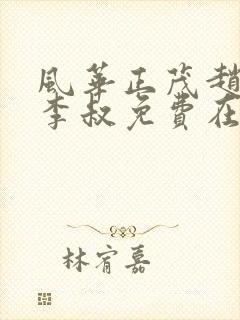 風華正茂趙
李叔免費在
林宥嘉